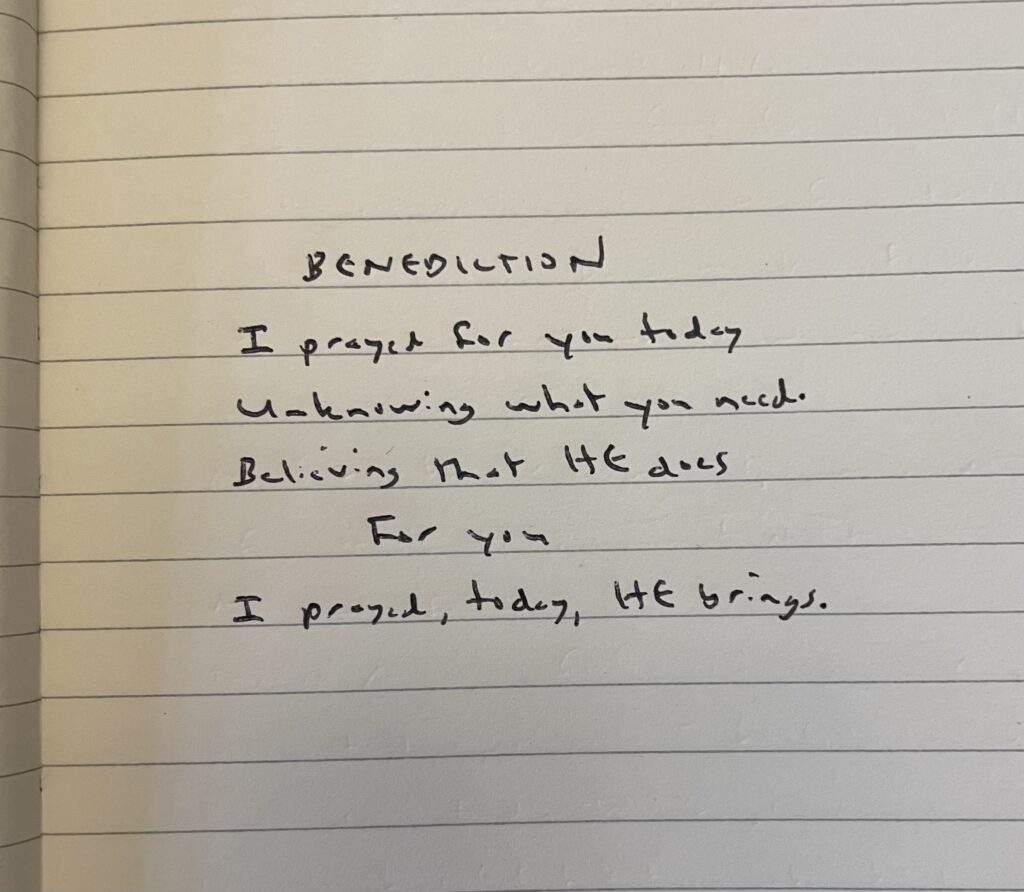 BENEDICTION
I prayed for you today
Unknowing what you need.
Believing that HE does
For you
I prayed, today, HE brings.